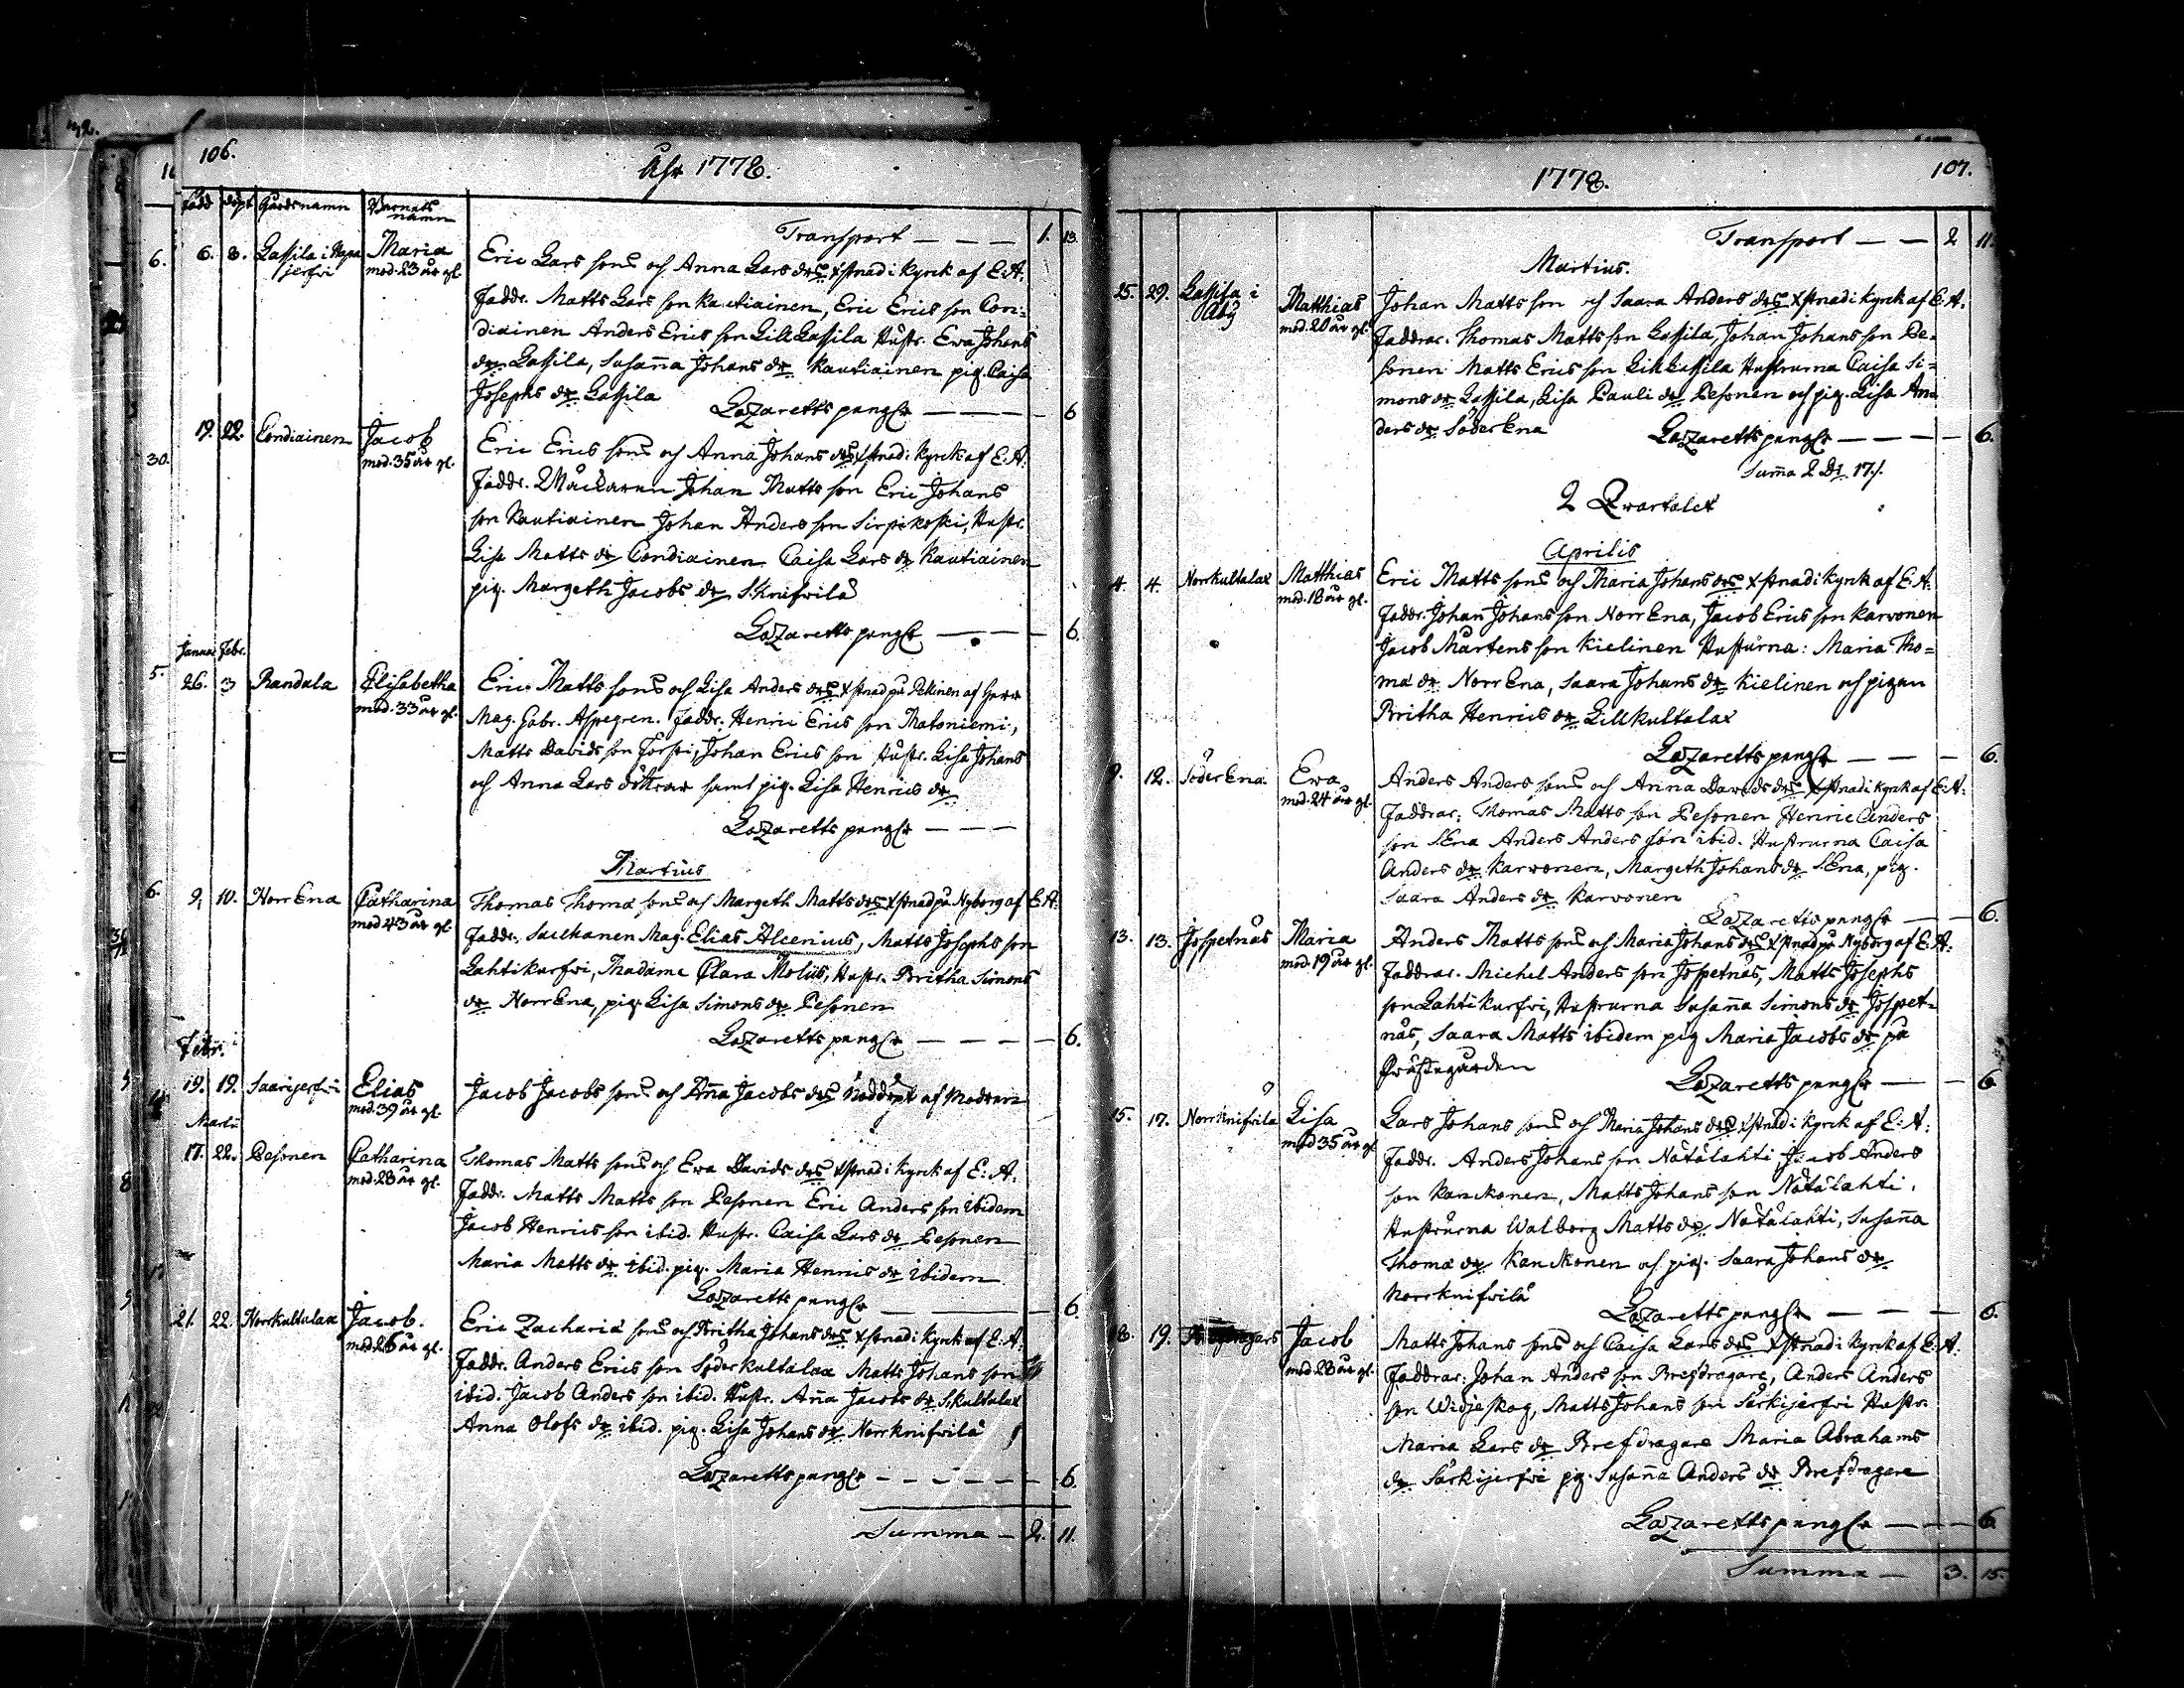 106.
Åhr 1778.
född döpt Gårdsnamn Barnets namn
Transport — — — 1. 13.
6. 8. Lassila i Hapajerfvi Maria mod. 23 år gl.
Eric Lars sons och Anna Lars drs Xstnad i Kyrck af E: A:
Faddr. Matts Lars son Kautiainen, Eric Erics son Con=
diainen Anders Erics son Lill Lassila Hustr. Ewa Johans
dr Lassila, Susanna Johans dr Kautiainen pig. Caisa
Josephs dr Lassila
Lazaretts pengr — — — 6
19. 22. Condiainen Jacob mod. 35 år gl.
Eric Erics sons och Anna Johans drs Xstnad i Kyrck af E: A:
Faddr. Johan Matts son Eric Johans
son Kautiainen Johan Anders son Sirpikoski, Hustr.
Lisa Matts dr Condiainen Caisa Lars dr Kautiainen
pig. Margeth Jacobs dr S. Knifvilä
Lazaretts pengr — — 6.
Januar Febr.
26. 3 Randala Elisabetha mod. 33 år gl.
Eric Matts sons och Lisa Anders drs Xstnad på Pekinen af Herr
Mag. Gabr. Aspegren. Faddr. Henric Erics son Matoniemi,
Matts Davids son Torpi, Johan Erics son Hustr. Lisa Johans
och Anna Lars döttrar samt pig. Lisa Henrics dr
Lazaretts pengr — — —
Martius
9. 10. Norr Ena Catharina mod 43 år gl.
Thomas Thomæ sons och Margeth Matts drs Xstnad på Nyborg af E: A:
Faddr. Mag. Elias Alcenius, Matts Josephs son
Lahtikurfvi, Madame Clara Moliis, Hustr. Britha Simons
dr Norr Ena, pig. Lisa Simons dr Pesonen
Lazaretts pengr — — — 6.
Febr.
19. 19. Saarijerfvi Elias mod. 39 år gl.
Jacob Jacobs sons och Anna Jacobs drs Nöddöpt af Modren
Martii
17. 22. Pesonen Catharina mod. 28 år gl.
Thomas Matts sons och Ewa Davids drs Xstnad i Kyrck af E: A.
Faddr. Matts Matts son Pesonen Eric Anders son ibidem
Jacob Henrics son ibid. Hustr. Caisa Lars dr Pesonen
Maria Matts dr ibid. pig. Maria Henrics dr ibidem
Lazaretts pengr — — 6
21. 22. Norrkultalax Jacob. mod. 26 år gl.
Eric Zachariæ sons och Britha Johans drs Xstnad i Kyrck af E: A:
Faddr. Anders Erics son Söderkultalax Matts Johans son
ibid. Jacob Anders son ibid. Hustr. Anna Jacobs dr S. kultalax
Anna Olofs dr ibid. pig. Lisa Johans dr Norrknifvilä
Lazaretts pengr — — — — 6.
Summa — 2. 11.
1778. 107.
Transport — — 2 11.
Martius.
25. 29. Lassila i Matthias mod. 20 år gl.
Johan Matts son och Saara Anders drs Xstnad i Kyrck af E: A.
Faddrar. Thomas Matts son Lassila, Johan Johans son Pe=
sonen Matts Erics son Lill Lassila Hustrurna Caisa Si=
mons dr Lassila, Lisa Pauli dr Pesonen och pig. Lisa An=
ders dr Söder Ena Lazaretts pengr — — — 6.
Summa 2 Dr 17/.
2 Qvartalet
Aprilis
4. 4. Norrkultalax Matthias mod. 18 år gl.
Eric Matts sons och Maria Johans drs Xstnad i Kyrk af E: A.
Faddr. Johan Johans son Norr Ena, Jacob Erics son Karvonen
Jacob Mårtens son Kielinen Hustrurna: Maria Tho=
mæ dr Norr Ena, Saara Johans dr Kielinen och pigan
Britha Henrics dr Lillkultalax
Lazaretts pengr — — — 6.
9. 12. Söder Ena Ewa mod. 24 år gl.
Anders Anders sons och Anna Davids drs Xstnad i Kyrk af E: A.
Faddrar. Thomas Matts son Pesonen Henric Anders
son S. Ena Anders Anders son ibid. Hustrurna Caisa
Anders dr Karvonen, Margeth Johans dr S. Ena, pig.
Saara Anders dr Karvonen
Lazaretts pengr — — 6.
13. 13. Jospetnäs Maria mod. 19 år gl.
Anders Matts sons och Maria Johans drs Xstnad på Nyborg af E: A.
Faddrar. Michel Anders son Jospetnäs, Matts Josephs
son Lahtikurfvi, Hustrurna Susanna Simons dr Jospet=
näs, Saara Matts ibidem pig Maria Jacobs dr på
Prästegården Lazaretts pengr — — 6
15. 17. Norrknifvila Lisa mod 35 år gl
Lars Johans sons och Maria Johans drs Xstnad i Kyrck af E: A:
Faddr. Anders Johans son Nätälahti, Jacob Anders
son Kanckonen, Matts Johans son Nätälahti.
Hustrurna Walborg Matts dr Nätälahti, Susanna
Thomæ dr Kanckonen och pig. Saara Johans dr
Norrknifvilä
Lazaretts pengr — — — 6.
18. 19. Jacob mod. 28 år gl.
Matts Johans sons och Caisa Lars drs Xstnad i Kyrck af E: A:
Faddrar: Johan Anders son Brefdragare, Anders Anders
son Widjeskog, Matts Johans son Särkijerfvi Hustr.
Maria Lars dr Brefdragare Maria Abrahams
dr Särkijerfvi pig. Susanna Anders dr Brefdragare
Lazaretts pengr — — — 6
Summa — 3. 15.